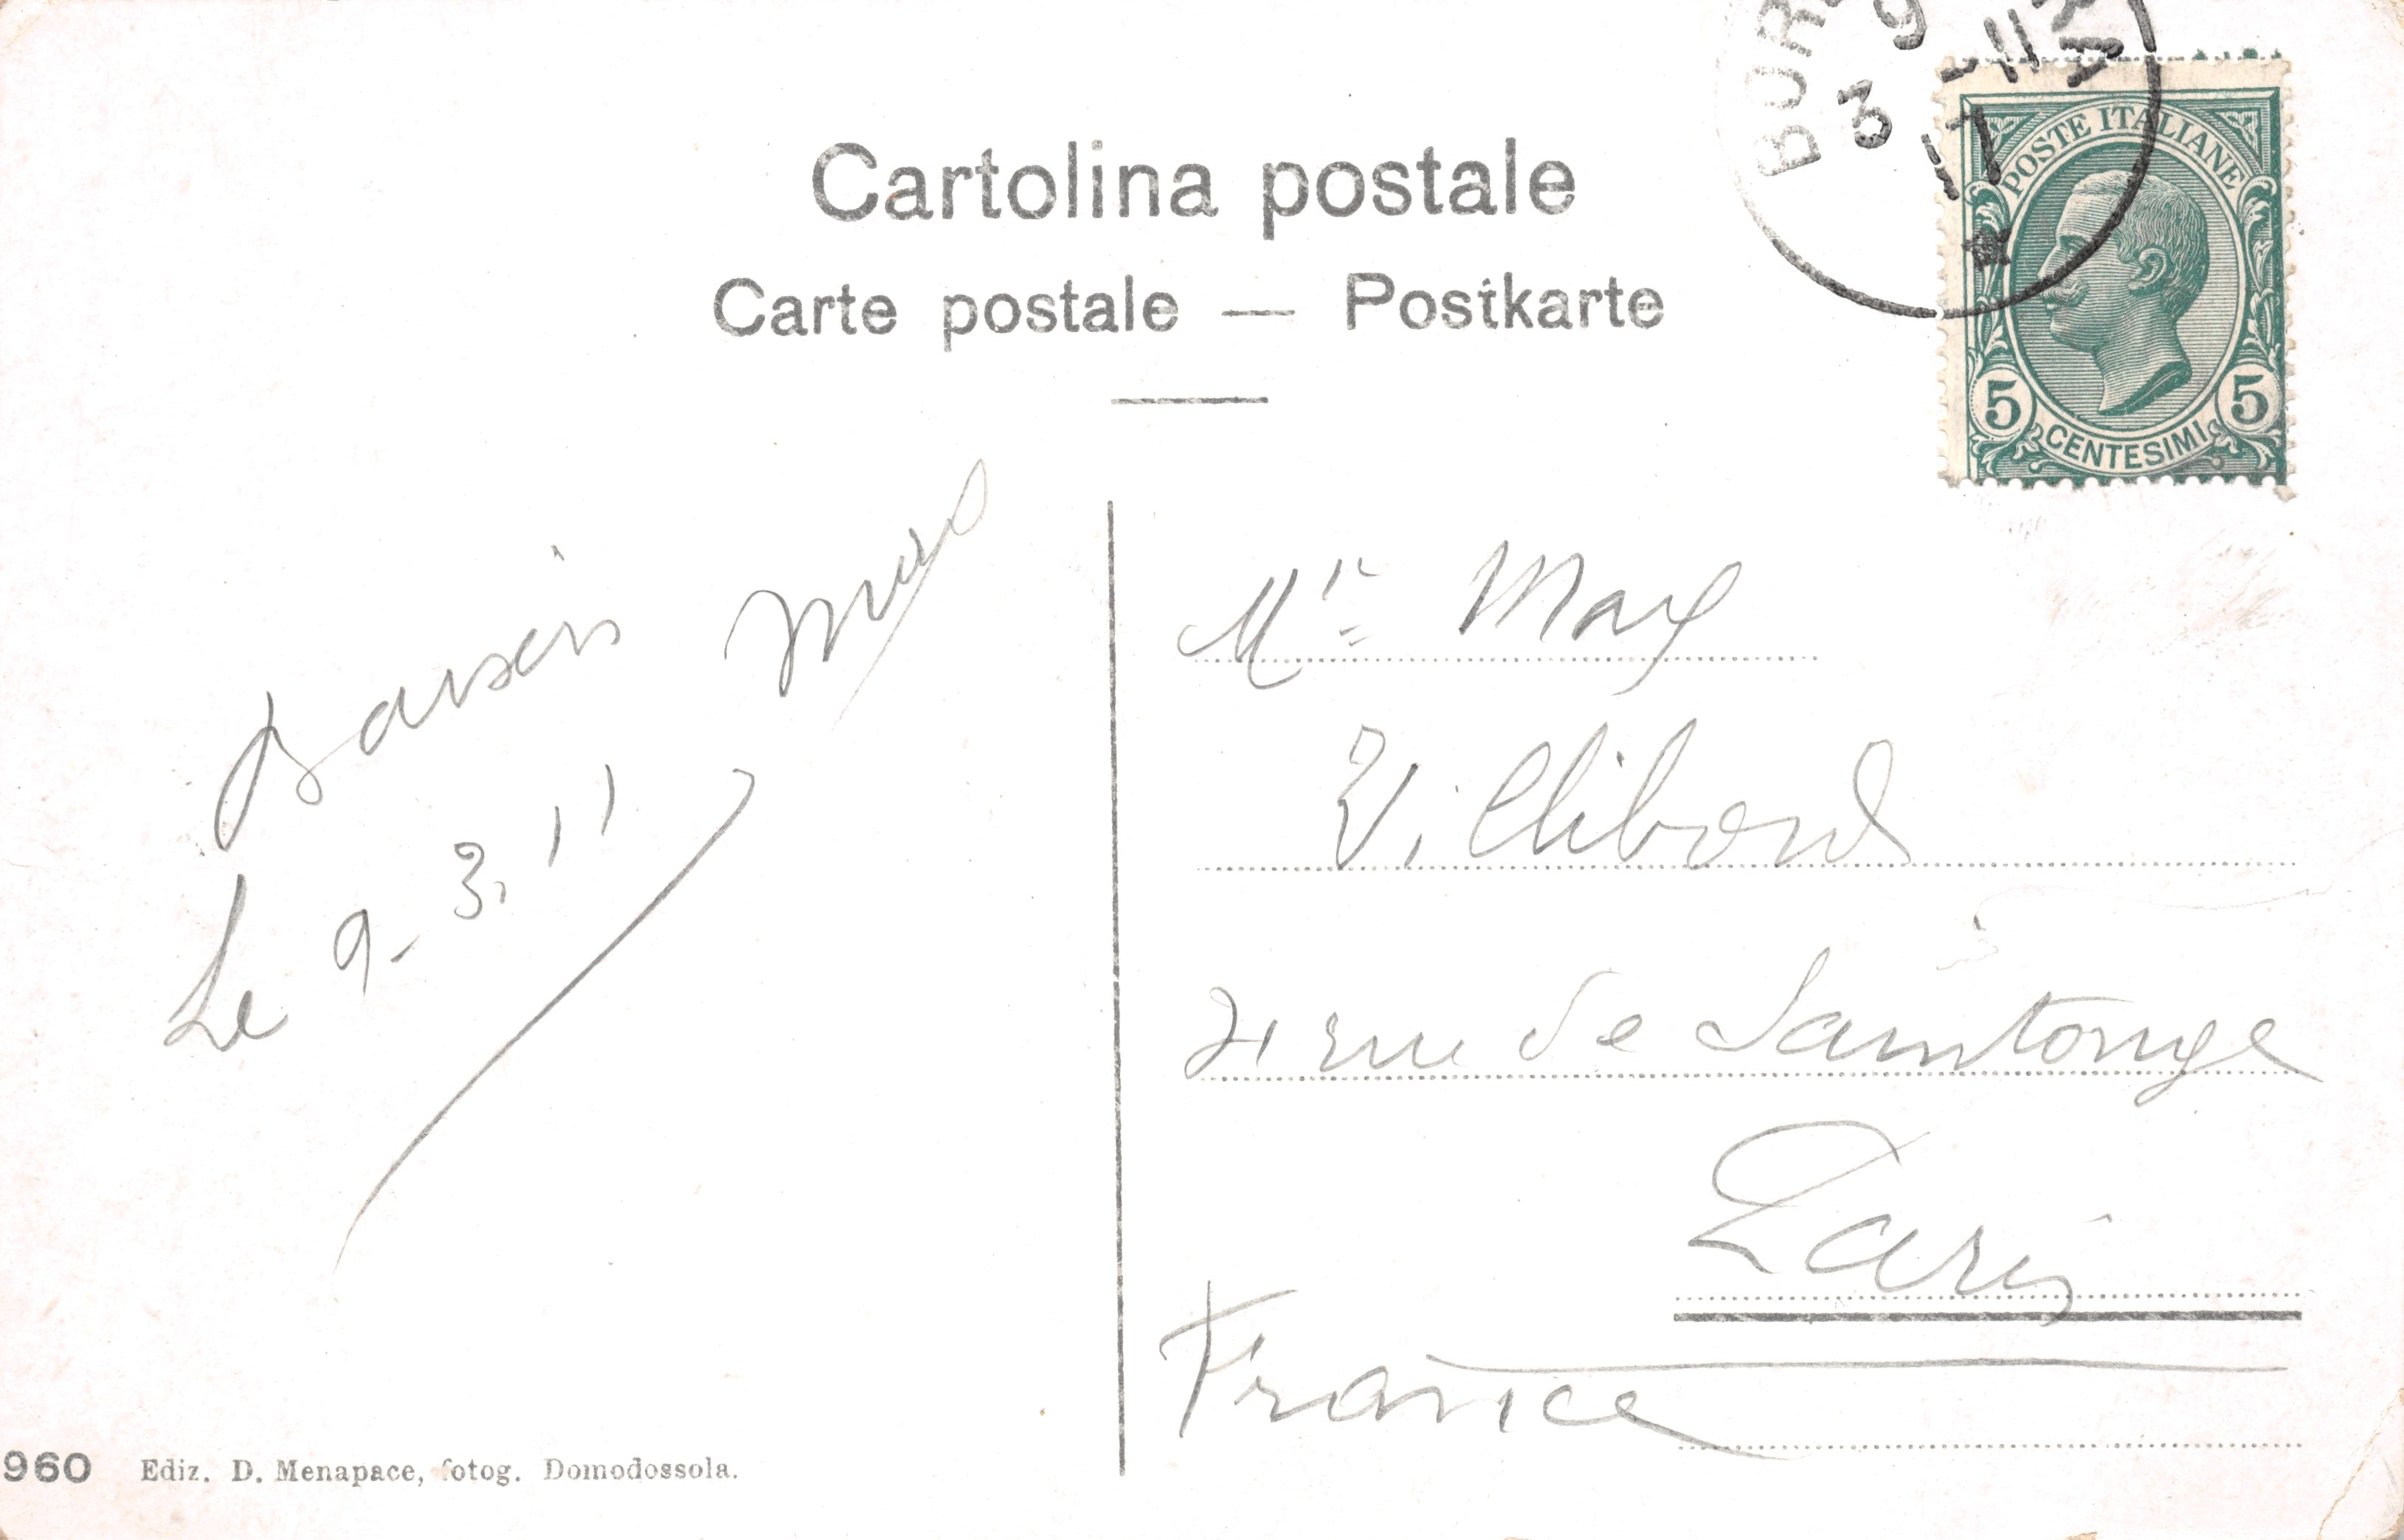 Cartolina postale
Carte postale — Postkarte
BOR
9
3 - 11
17
POSTE ITALIANE
5 5
CENTESIMI
Le 9-3.11
Mr Max
Villibord
rue de Saintonge
Paris
France
960 Ediz. D. Menapace, fotog. Domodossola.